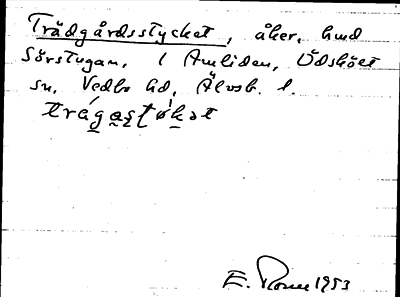 Trädgårdsstycket, åker, hmd
Sörstugan, 1 Amliden, Ödskölt
sn, Vedbo hd, Älvsb. l.
trágast̩ø̀kət
E. 1953